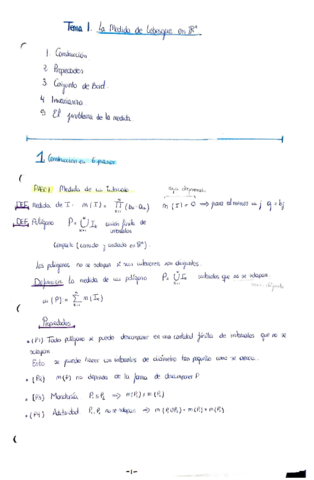 Tema 1. La Medida de Lebesgue en ℝⁿ
1. Construcción
2. Propiedades
3. Conjunto de Borel
4. Invarianza
5. El problema de la medida
1 Construcción en 6 pasos
PASO 1 Medida de un Intervalo
DEF medida de I. m(I) = ∏ (bₖ-aₖ) m(I)=0 ⟹ para al menos un j aⱼ = bⱼ
DEF Polígono P = ⋃ Iₖ unión finita de
intervalos
compacto (cerrado y acotado en ℝⁿ).
Los polígonos no se solapan si sus interiores son disjuntos.
Definimos la medida de un polígono P = ⋃ Iₖ intervalos que no se solapan
m(P) = ∑ m(Iₖ)
Propiedades
• (P1) Todo polígono se puede descomponer en una cantidad finita de intervalos que no se
solapan.
Esto se puede hacer con intervalos de diámetro tan pequeño como se quiera.
• (P2) m(P) no depende de la forma de descomponer P
• (P3) Monotonía P₁ ⊂ P₂ ⟹ m(P₁) ≤ m(P₂)
• (P4) Aditividad P₁, P₂ no se solapan ⟹ m(P₁∪P₂) = m(P₁) + m(P₂)
-1-